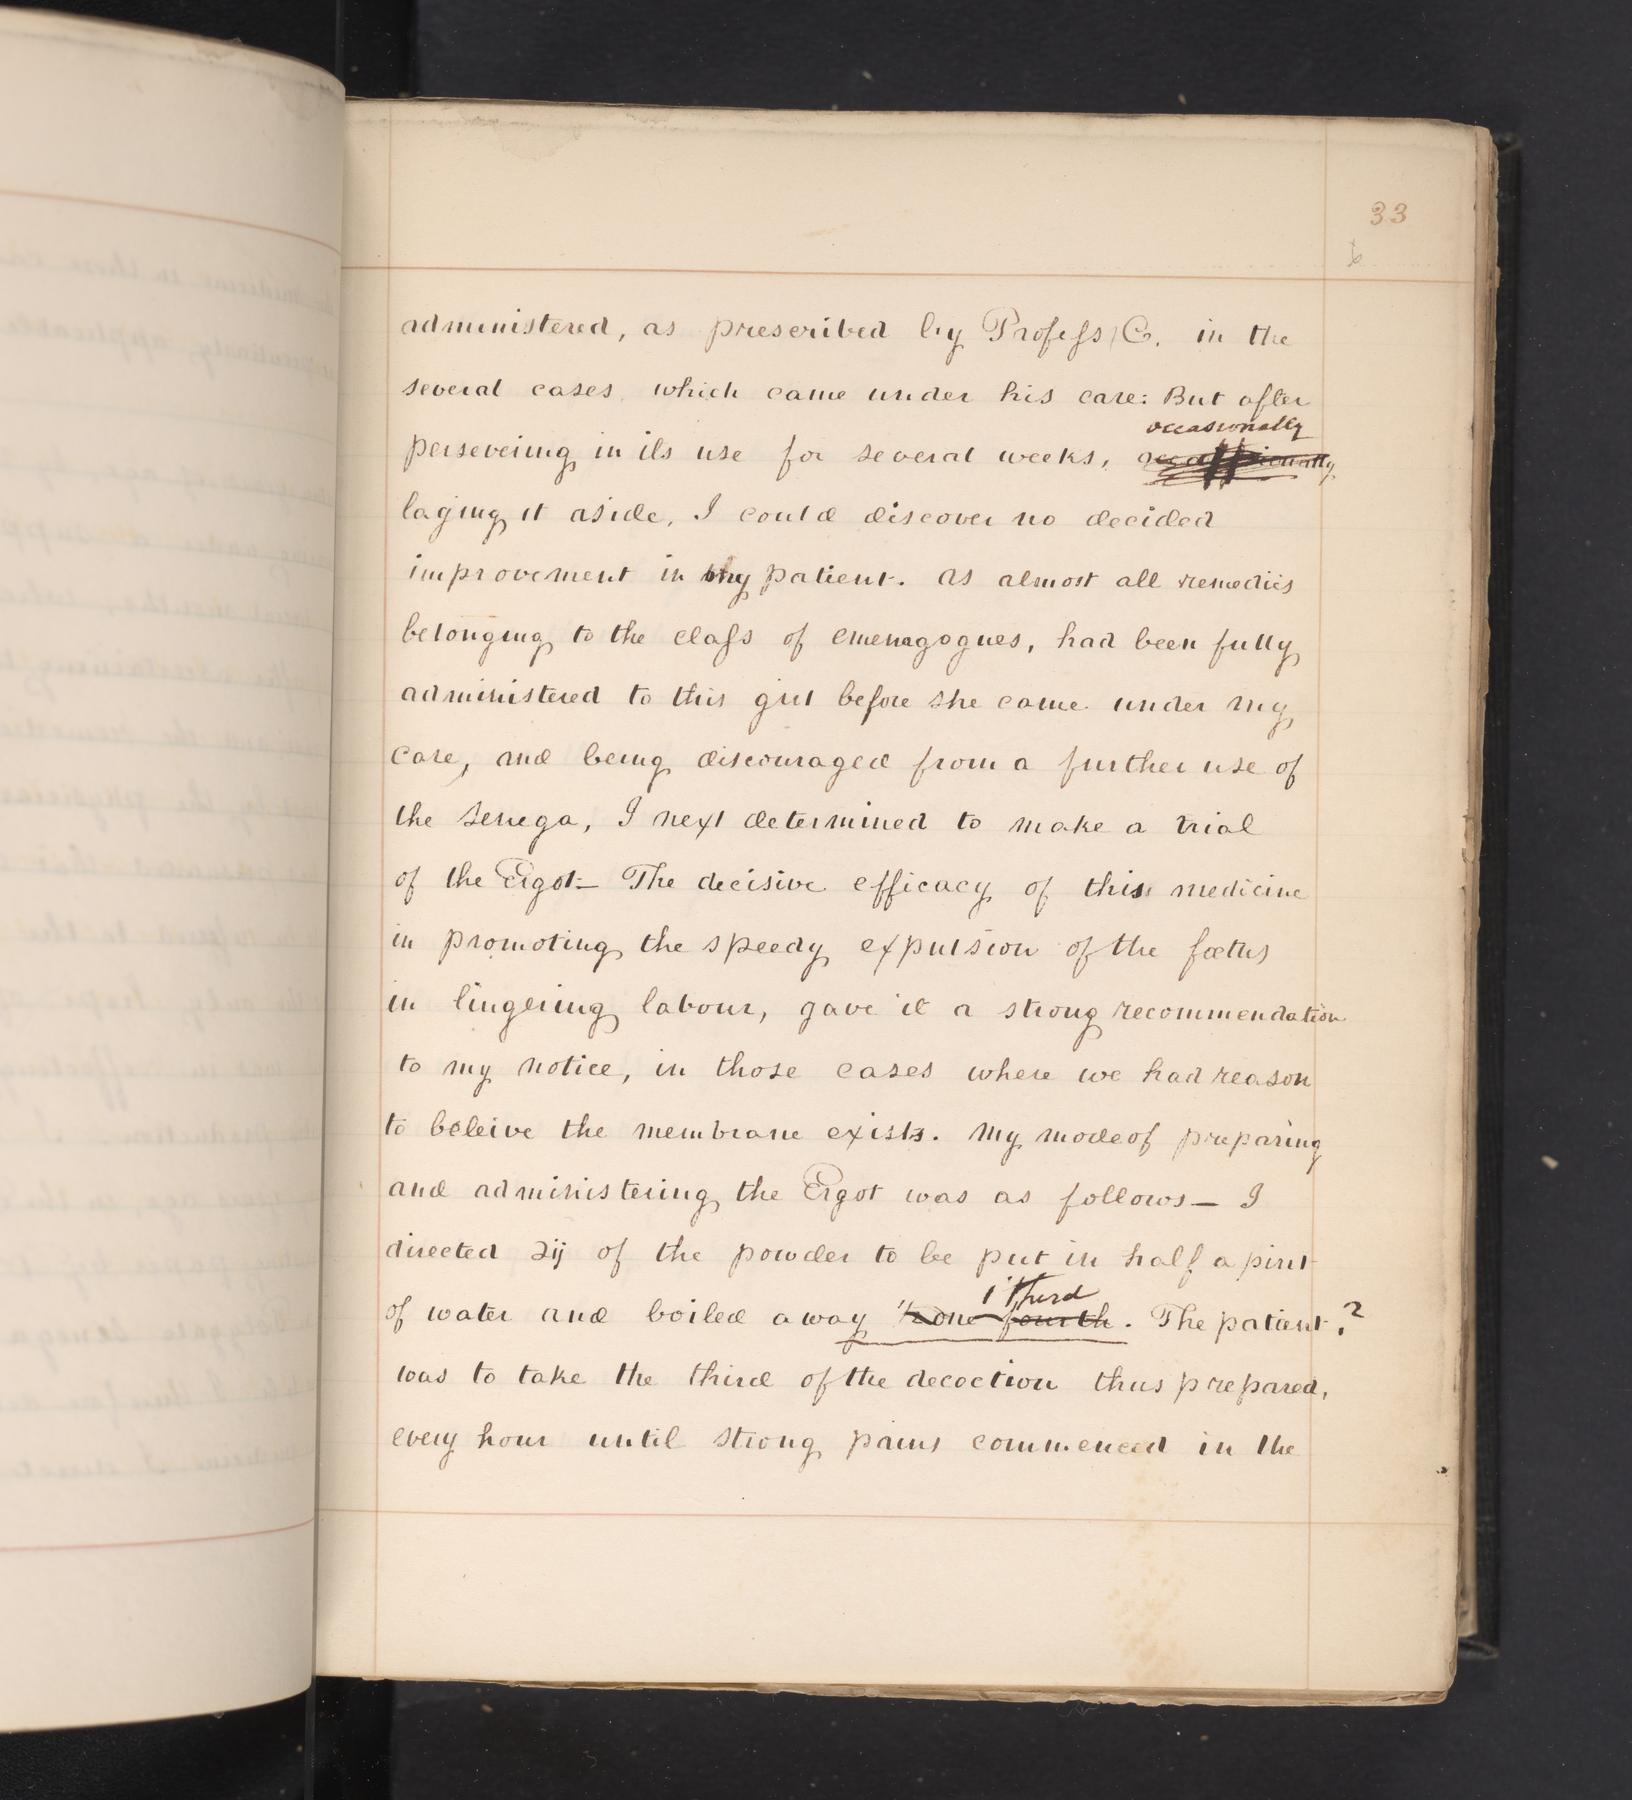 33
administered, as prescribed by Profess C. in the
several cases which came under his care: But after
occasionally
perseveing in its use for several weeks,
laying it aside, I could discover no decided
improvement in my patient. as almost all remedies
belonging to the class of emenagogues, had been fully
administered to this girl before she came under my
care, and being discouraged from a further use of
the Senega, I next determined to make a trial
of the Ergot— The decisive efficacy of this medicine
in promoting the speedy expulsion of the fœtus
in lingering labour, gave it a strong recommendation
to my notice, in those cases where we had reason
to beleive the membrane exists. My mode of preparing
and administering the Ergot was as follows— I
directed ʒij of the powder to be put in half a pint
1 third
of water and boiled away one fourth. The patient ?
was to take the third of the decoction thus prepared,
every hour until strong pains commenced in the